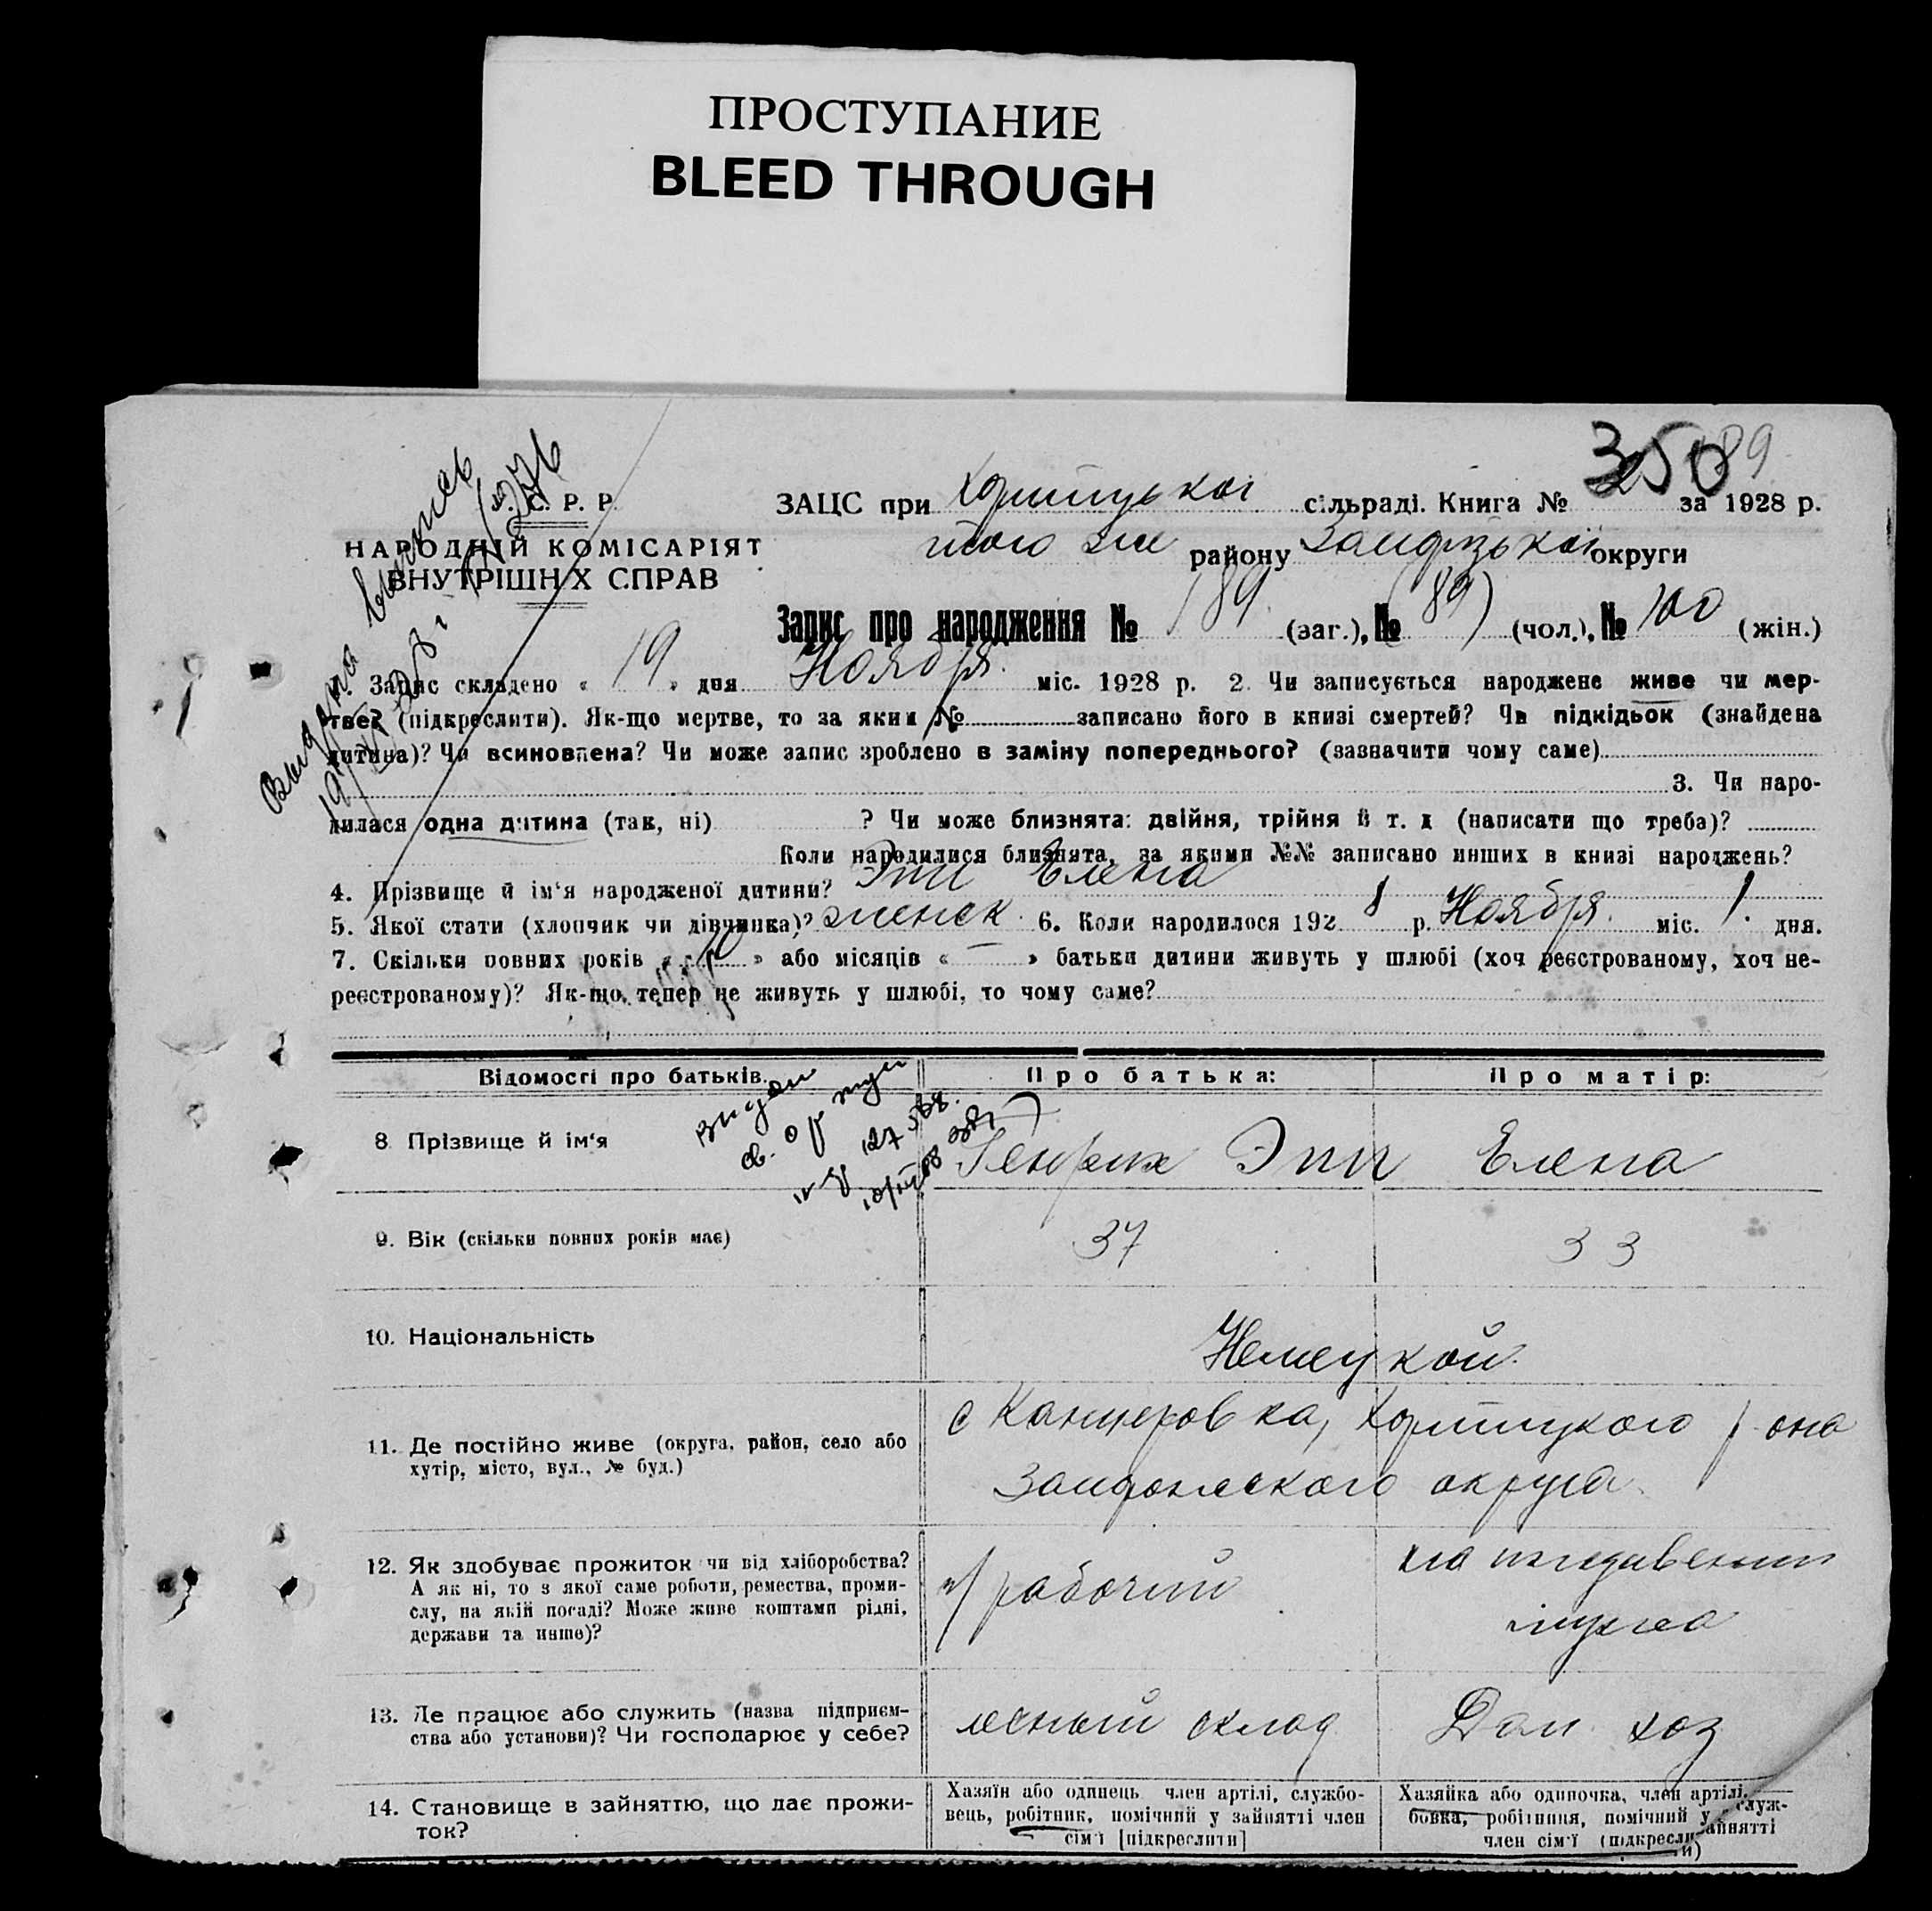 ПРОСТУПАНИЕ
BLEED THROUGH
350 189
У. С. Р. Р.
НАРОДНІЙ КОМІСАРІЯТ
ВНУТРІШНІХ СПРАВ
Видана выпись
ЗАЦС при Хортицької сільраді. Книга № за 1928 р.
того же району Запорізької округи
Запис про народження № 189 (заг.), № (89) (чол.), № 100 (жін.)
1. Запис складено « 19 » дня Ноября міс. 1928 р. 2. Чи записується народжене живе чи мер-
тве? (підкреслити). Як-що мертве, то за яким № записано його в книзі смертей? Чи підкідьок (знайдена
дитина)? Чи всиновлена? Чи може запис зроблено в заміну попереднього? (зазначити чому саме)
3. Чи наро-
дилася одна дитина (так, ні) ? Чи може близнята: двійня, трійня й т. д (написати що треба)?
Коли народилися близнята, за якими №№ записано инших в книзі народжень?
4. Прізвище й ім‘я народженої дитини? Эпп Елена
5. Якої стати (хлопчик чи дівчинка)? женск. 6. Коли народилося 192 8 р. Ноября міс. 1. дня.
7. Скільки повних років « 10 » або місяців « — » батьки дитини живуть у шлюбі (хоч реєстрованому, хоч не-
реєстрованому)? Як-що тепер не живуть у шлюбі, то чому саме?
Відомості про батьків. Про батька: Про матір:
Видан
св.
8. Прізвище й ім‘я Генрих Эпп Елена
9. Вік (скільки повних років має) 37 33
10. Національність Немецкой
11. Де постійно живе (округа, район, село або
хутір, місто, вул., № буд.)
с Канцеровка, Хортицкого р-она
Запорожского округа
12. Як здобуває прожиток чи від хліборобства?
А як ні, то з якої саме роботи, ремества, проми-
слу, на якій посаді? Може живе коштами рідні,
держави та инше)?
ч/рабочий
на иждивении
мужа
13. Де працює або служить (назва підприєм-
ства або установи)? Чи господарює у себе?
лесный склад Дом. хоз
14. Становище в зайняттю, що дає прожи-
ток?
Хазяїн або одинець член артілі, службо-
вець, робітник, помічний у зайнятті член
сім‘ї [підкреслити]
Хазяйка або одиночка, член артілі, служ-
бовка, робітниця, помічний у зайнятті
член сім‘ї (підкреслити)